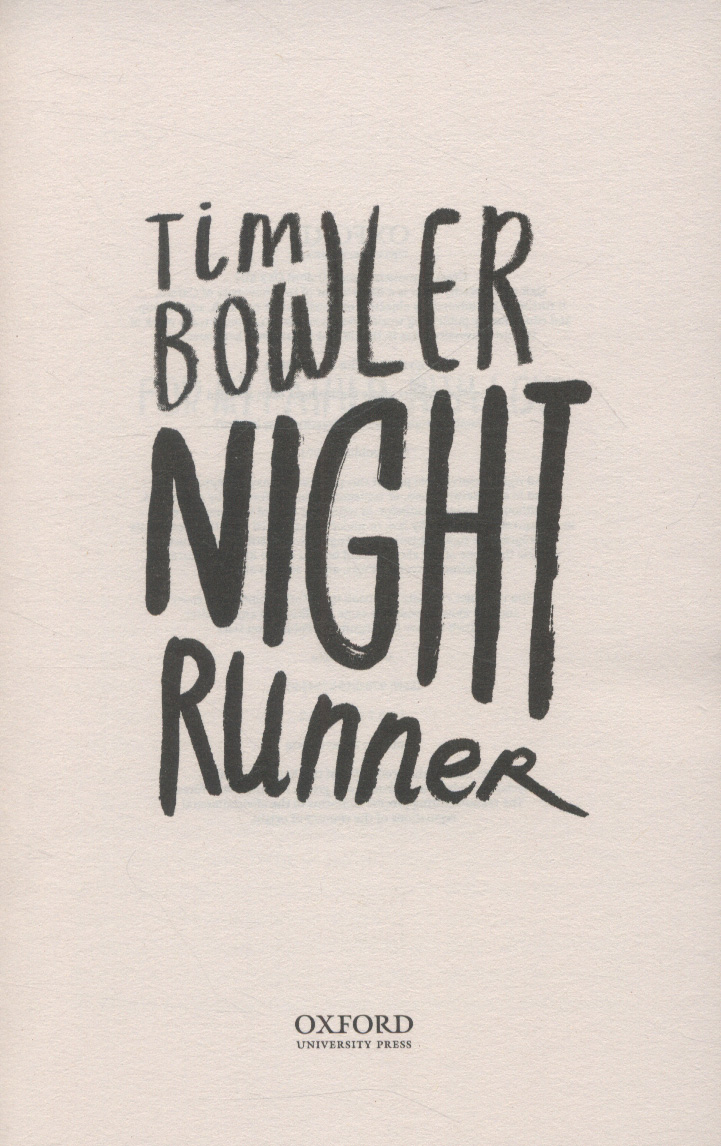 Tim
BOWLER
NIGHT
Runner
OXFORD
UNIVERSITY PRESS